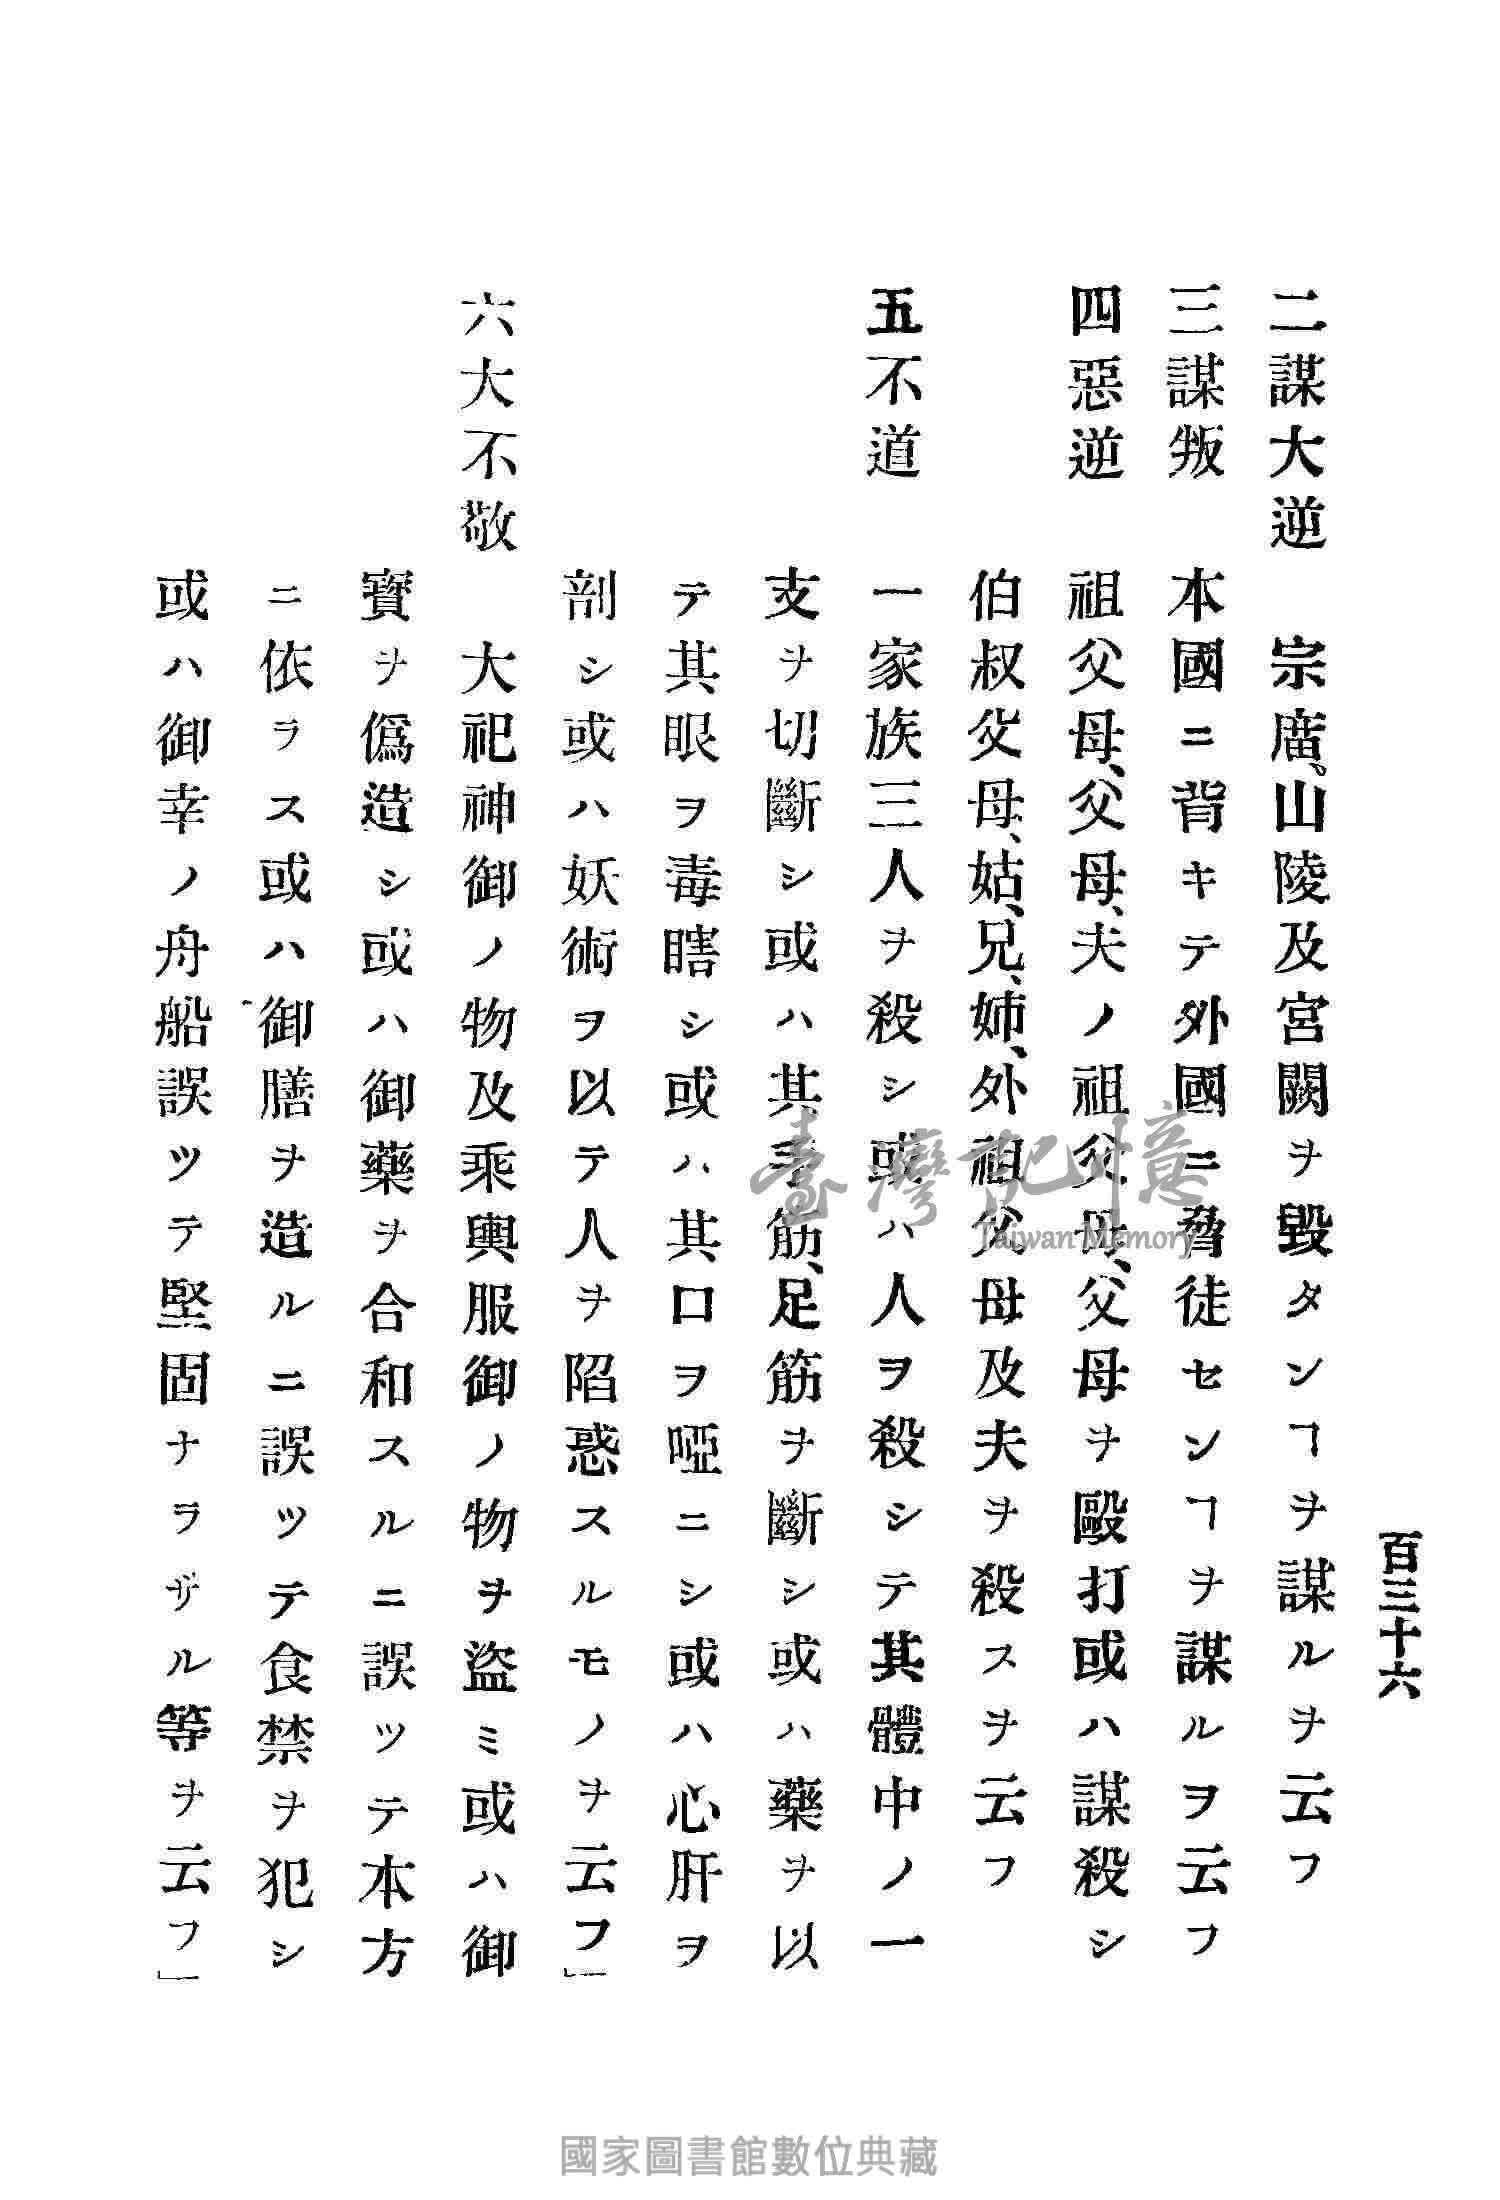 百三十六
二謀大逆　宗庿、山陵及宮闕ヲ毀タンヿヲ謀ルヲ云フ
三謀叛　本國ニ背キテ外國ニ脅徒センヿヲ謀ルヲ云フ
四惡逆　祖父母、父母、夫ノ祖父母、父母ヲ毆打或ハ謀殺シ
伯叔父母、姑、兄、姉、外祖父母及夫ヲ殺スヲ云フ
五不道　一家族三人ヲ殺シ或ハ人ヲ殺シテ其體中ノ一
支ヲ切斷シ或ハ其手筋、足筋ヲ斷シ或ハ藥ヲ以
テ其眼ヲ毒瞎シ或ハ其口ヲ啞ニシ或ハ心肝ヲ
剖シ或ハ妖術ヲ以テ人ヲ陷惑スルモノヲ云フ」
六大不敬　大祀神御ノ物及乘輿服御ノ物ヲ盜ミ或ハ御
寶ヲ僞造シ或ハ御藥ヲ合和スルニ誤ツテ本方
ニ依ラス或ハ御膳ヲ造ルニ誤ツテ食禁ヲ犯シ
或ハ御幸ノ舟船誤ツテ堅固ナラザル等ヲ云フ」
臺灣記憶
Taiwan Memory
國家圖書館數位典藏